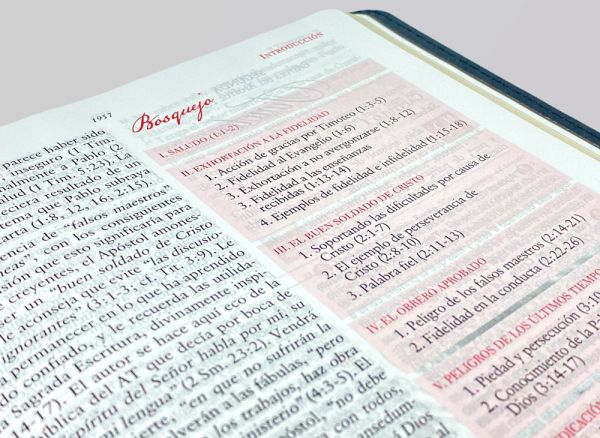 1937
INTRODUCCIÓN
parece haber sido
inseguro (1 Tim.
nalmente a Pablo (2
lla (1 Tim. 5:23). La
reciera resultado de un
tema que Pablo subraya
carta (1:8, 12, 16; 2:15).
encia de "falsos maestros"
eas", con los consiguientes
isión que esto significaría para
creyentes, el Apóstol anima
un "buen soldado de Cristo".
le aconseja que evite las discusio-
ignorantes" (3:1-3; cf. Tit. 3:9). Le
a permanecer en lo que ha aprendido
confiado, y le recuerda las utilida-
a Sagrada Escritura, divinamente inspi-
14-17). El autor se hace aquí eco de la
ública del AT que decía por boca de
Espíritu del Señor habla por mí, su
mi lengua" (2 Sm. 23:2). Vendrá
, "en que no sufrirán la
volverán a las fábulas, "pero
los trabajos, haz obra
ministerio" (4:3-5). El
póstol, no debe
con todos,
ansedum
Dios
Bosquejo
I. SALUDO (1:1-2)
II. EXHORTACIÓN A LA FIDELIDAD
1. Acción de gracias por Timoteo (1:3-5)
2. Fidelidad al Evangelio (1:6)
3. Exhortación a no avergonzarse (1:8-12)
3. Fidelidad a las enseñanzas
recibidas (1:13-14)
4. Ejemplos de fidelidad e infidelidad (1:15-18)
III. EL BUEN SOLDADO DE CRISTO
1. Soportando las dificultades por causa de
Cristo (2:1-7)
2. El ejemplo de perseverancia de
Cristo (2:8-10)
3. Palabra fiel (2:11-13)
IV. EL OBRERO APROBADO
1. Peligro de los falsos maestros (2:14-21)
2. Fidelidad en la conducta (2:22-26)
V. PELIGROS DE LOS ÚLTIMOS TIEMPO
1. Piedad y persecución (3:10
2. Conocimiento de la Pa
Dios (3:14-17)
DICACIÓ